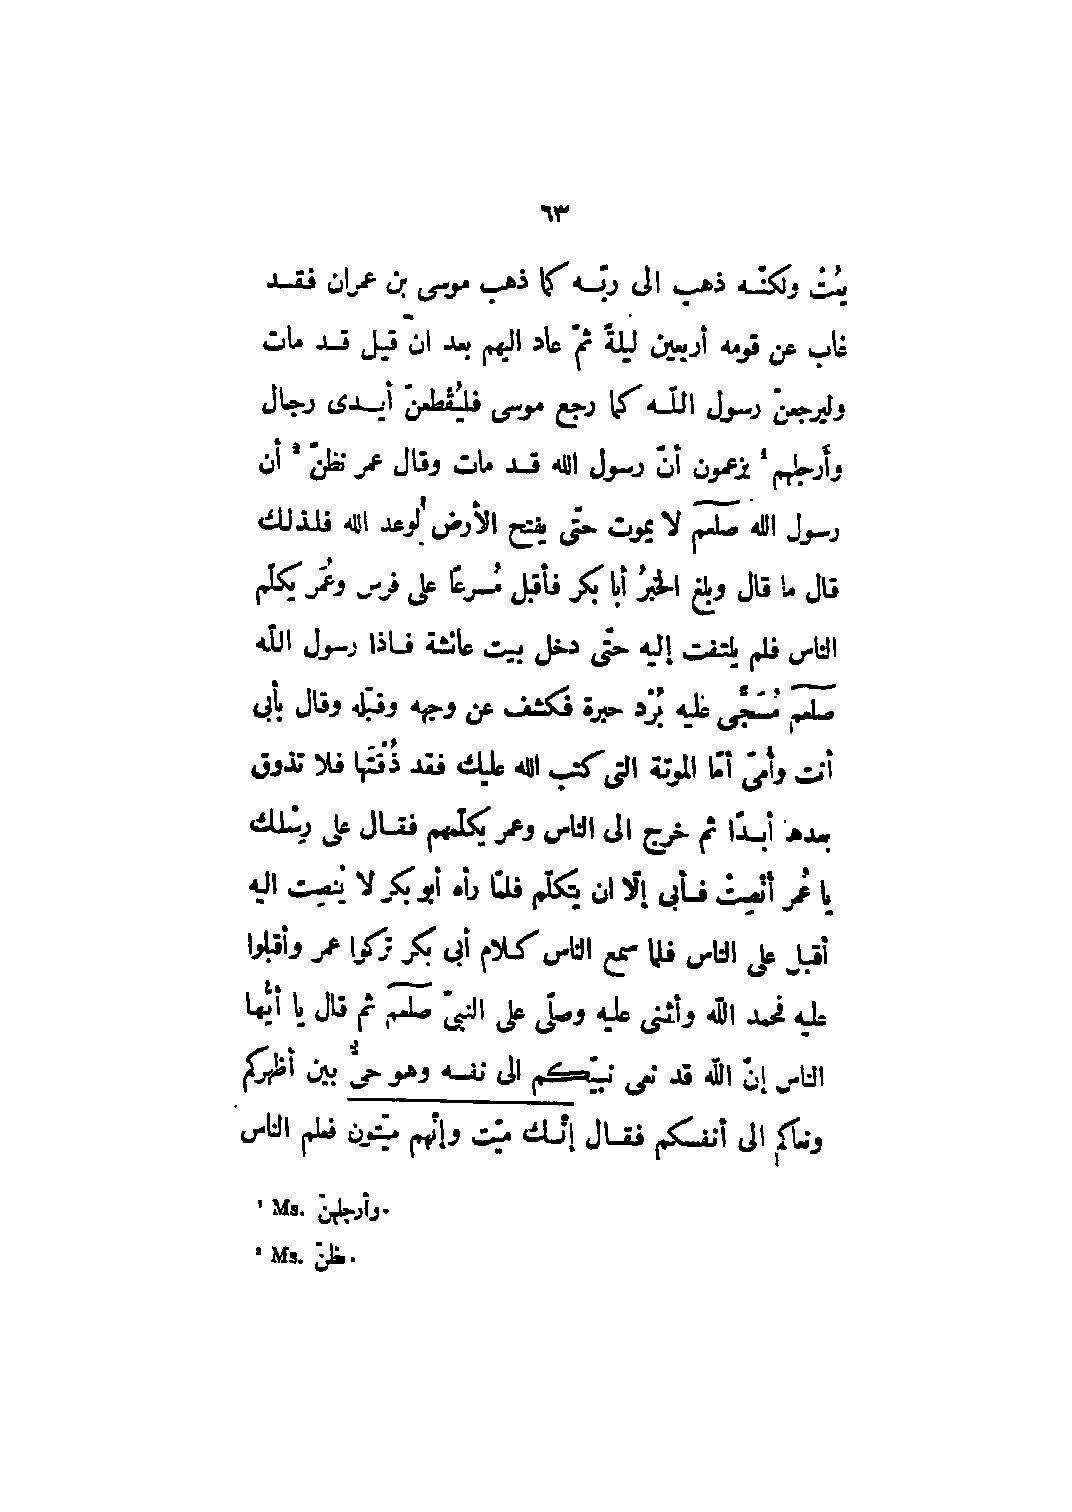 ٦٣
يمُتْ ولكنّه ذهب الى ربّه كما ذهب موسى بن عمران فقد
غاب عن قومه أربعين ليلةً ثمّ عاد اليهم بعد انّ قيل قد مات
وليرجعنّ رسول اللّه كما رجع موسى فليُقطعنّ أيدى رجال
وأَرجلهم ¹ يزعمون أنّ رسول الله قد مات وقال عمر نظنّ ² أن
رسول الله صلعم لا يموت حتّى يفتح الأرض لوعد الله فلذلك
قال ما قال وبلغ الخبرُ أبا بكر فأقبل مُسرعًا على فرس وعُمَر يكلّم
الناس فلم يلتفت إليه حتّى دخل بيت عائشة فاذا رسول اللّه
صلعم مُسَجًّى عليه بُرْد حبرة فكشف عن وجهه وقبّله وقال بأبى
أنت وأُمّى أمّا الموتة التى كتب الله عليك فقد ذُقْتَها فلا تذوق
بعدها أبدًا ثم خرج الى الناس وعمر يكلّمهم فقال على رِسْلك
يا عُمر أنْصِتْ فأبى إلّا ان يتكلّم فلمّا رأه أبو بكر لا يُنصِت اليه
أقبل على الناس فلما سمع الناس كلام أبى بكر تركوا عمر وأقبلوا
عليه فحمد اللّه وأثنى عليه وصلّى على النبىّ صلعم ثم قال يا أيُّها
الناس إنّ اللّه قد نعى نبيّكم الى نفسه وهو حىٌّ بين أظهركم
ونعاكم الى أنفسكم فقال إنّك ميّت وإنّهم ميّتون فعلم الناس
¹ Ms. وأرجلهنّ.
² Ms. ظنّ.